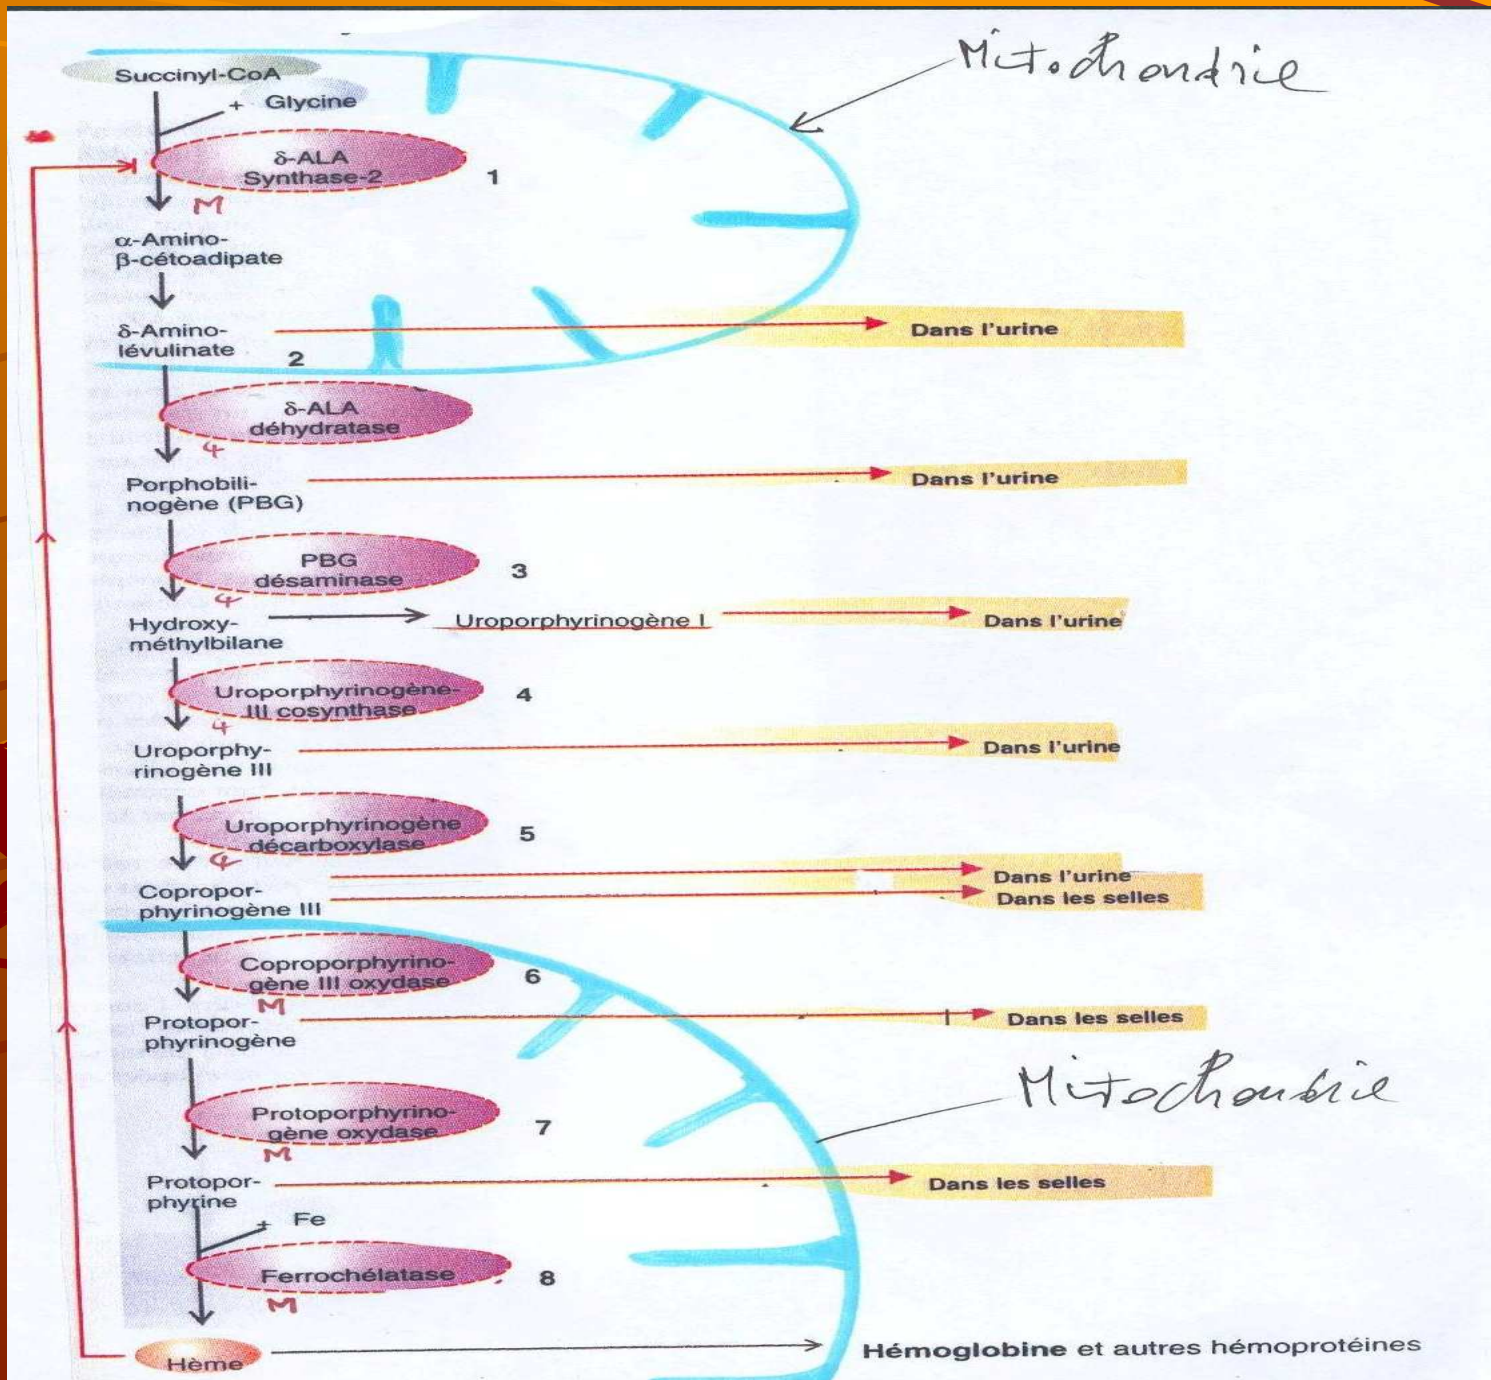 Mitochondrie
Succinyl-CoA
+ Glycine
δ-ALA
Synthase-2
1
M
α-Amino-
β-cétoadipate
δ-Amino-
lévulinate
2
Dans l'urine
δ-ALA
déhydratase
Porphobili-
nogène (PBG)
Dans l'urine
PBG
désaminase
3
Hydroxy-
méthylbilane
Uroporphyrinogène I
Dans l'urine
Uroporphyrinogène-
III cosynthase
4
Uroporphy-
rinogène III
Dans l'urine
Uroporphyrinogène
décarboxylase
5
Copropor-
phyrinogène III
Dans l'urine
Dans les selles
Coproporphyrino-
gène III oxydase
6
M
Protopor-
phyrinogène
Dans les selles
Mitochondrie
Protoporphyrino-
gène oxydase
7
M
Protopor-
phyrine
Dans les selles
+ Fe
Ferrochélatase
8
M
Hème
Hémoglobine et autres hémoprotéines